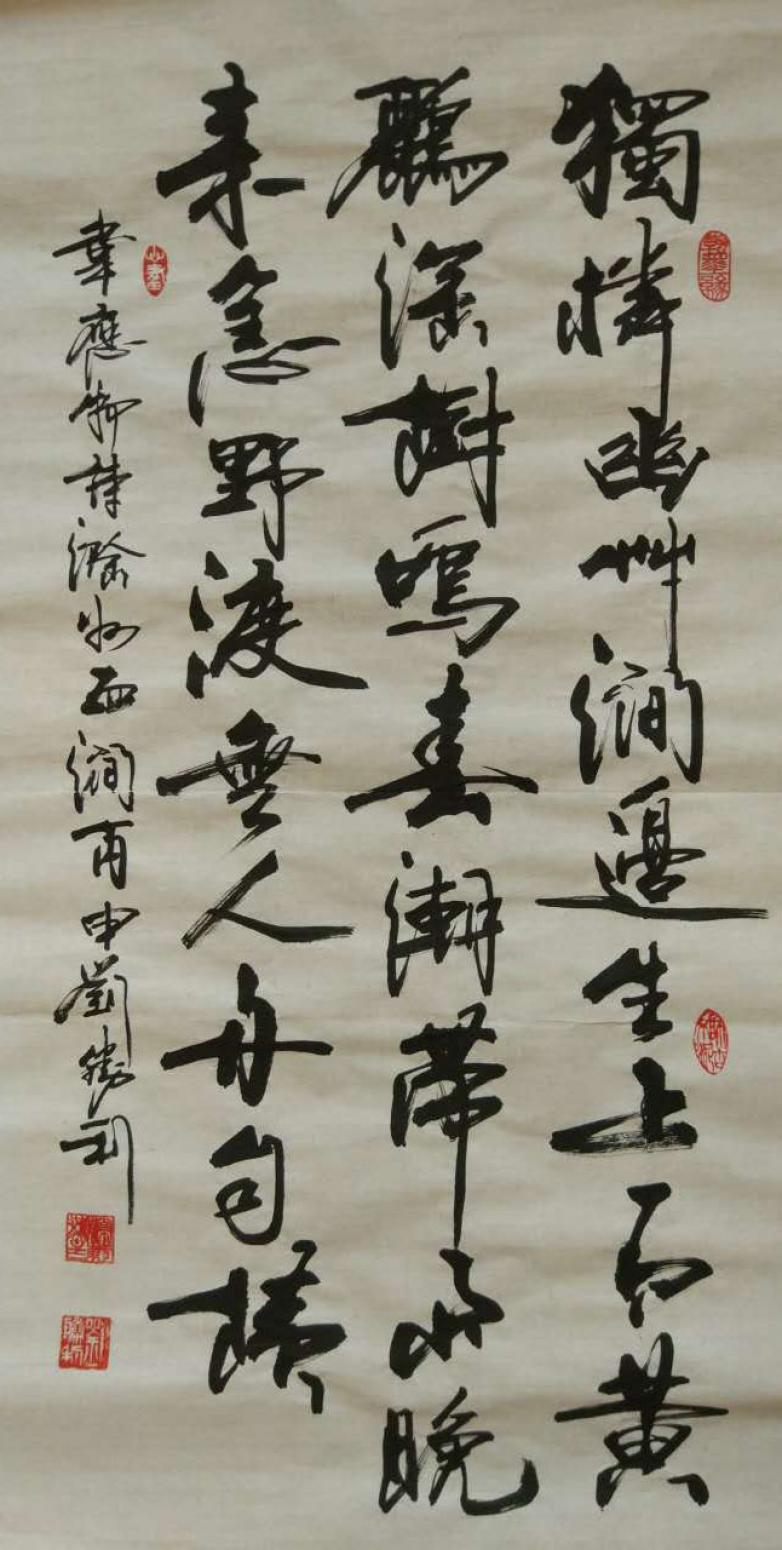 獨憐幽艸澗邊生上有黃
鸝深樹鳴春潮帶雨晚
来急野渡無人舟自橫
韋應物詩滁州西澗丙申劉勝利